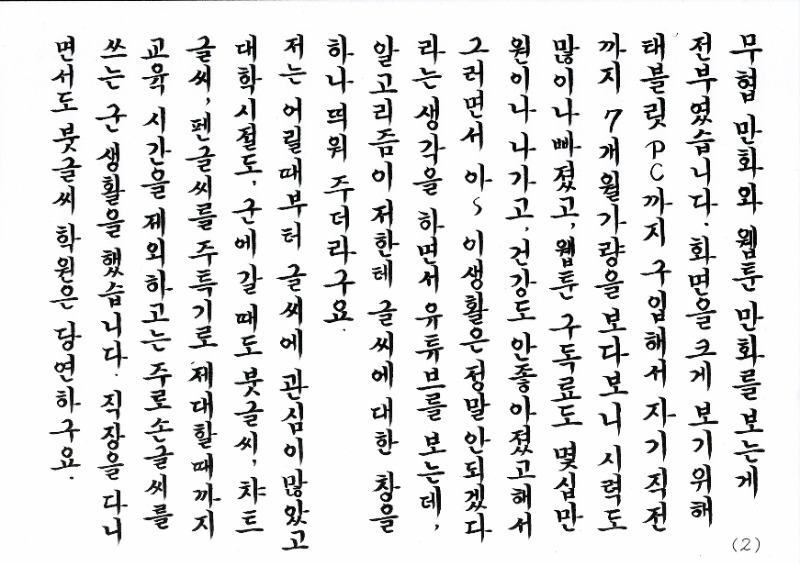 무협 만화와 웹툰 만화를 보는게
전부였습니다. 화면을 크게 보기위해
태블릿PC까지 구입해서 자기직전
까지 7개월가량을 보다보니 시력도
많이나빠졌고, 웹툰 구독료도 몇십만
원이나 나가고, 건강도 안좋아졌고해서
그러면서 아~ 이생활은정말안되겠다
라는생각을 하면서 유튜브를 보는데,
알고리즘이 저한테 글씨에 대한 창을
하나 띄워 주더라구요.
저는 어릴때부터 글씨에 관심이많았고
대학시절도, 군에갈 때도붓글씨, 챠트
글씨, 펜글씨를주특기로 제대할때까지
교육 시간을제외하고는주로손글씨를
쓰는 군 생활을했습니다. 직장을 다니
면서도붓글씨 학원은 당연하구요.
(2)